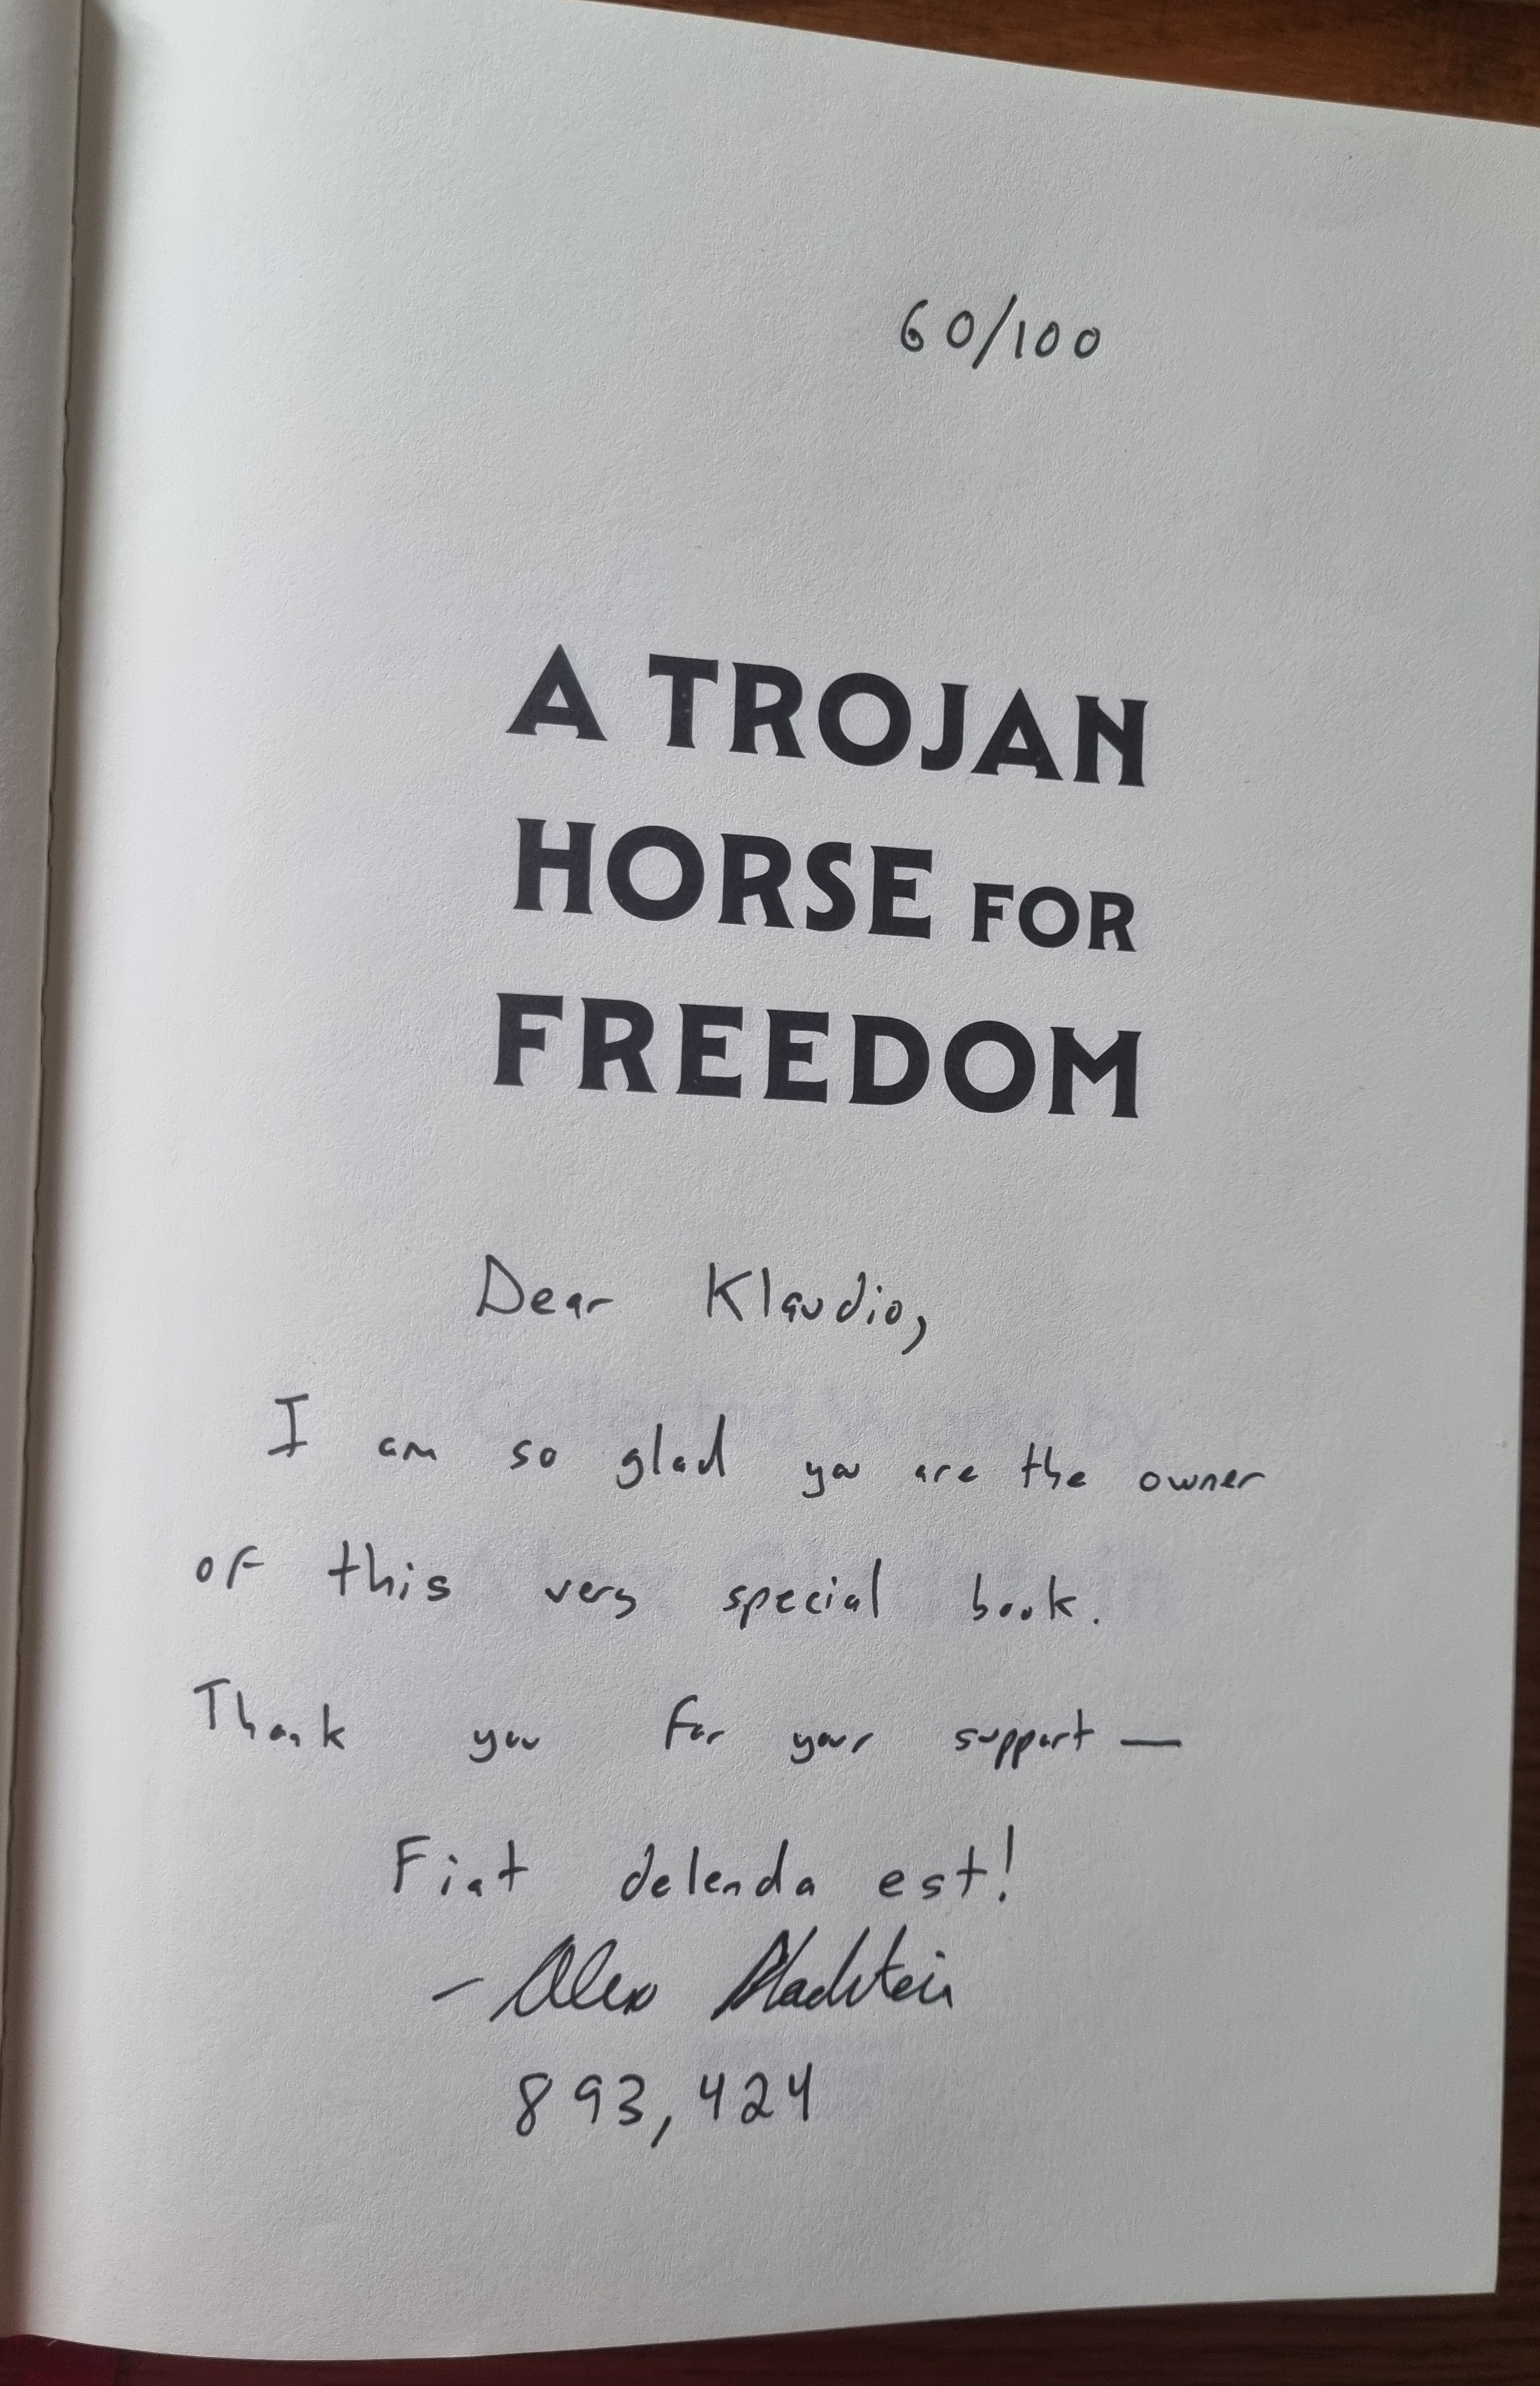 60/100
A TROJAN
HORSE FOR
FREEDOM
Dear Klaudio,
I am so glad you are the owner
of this very special book.
Thank you for your support —
Fiat delenda est!
– Alex Gladstein
893,424